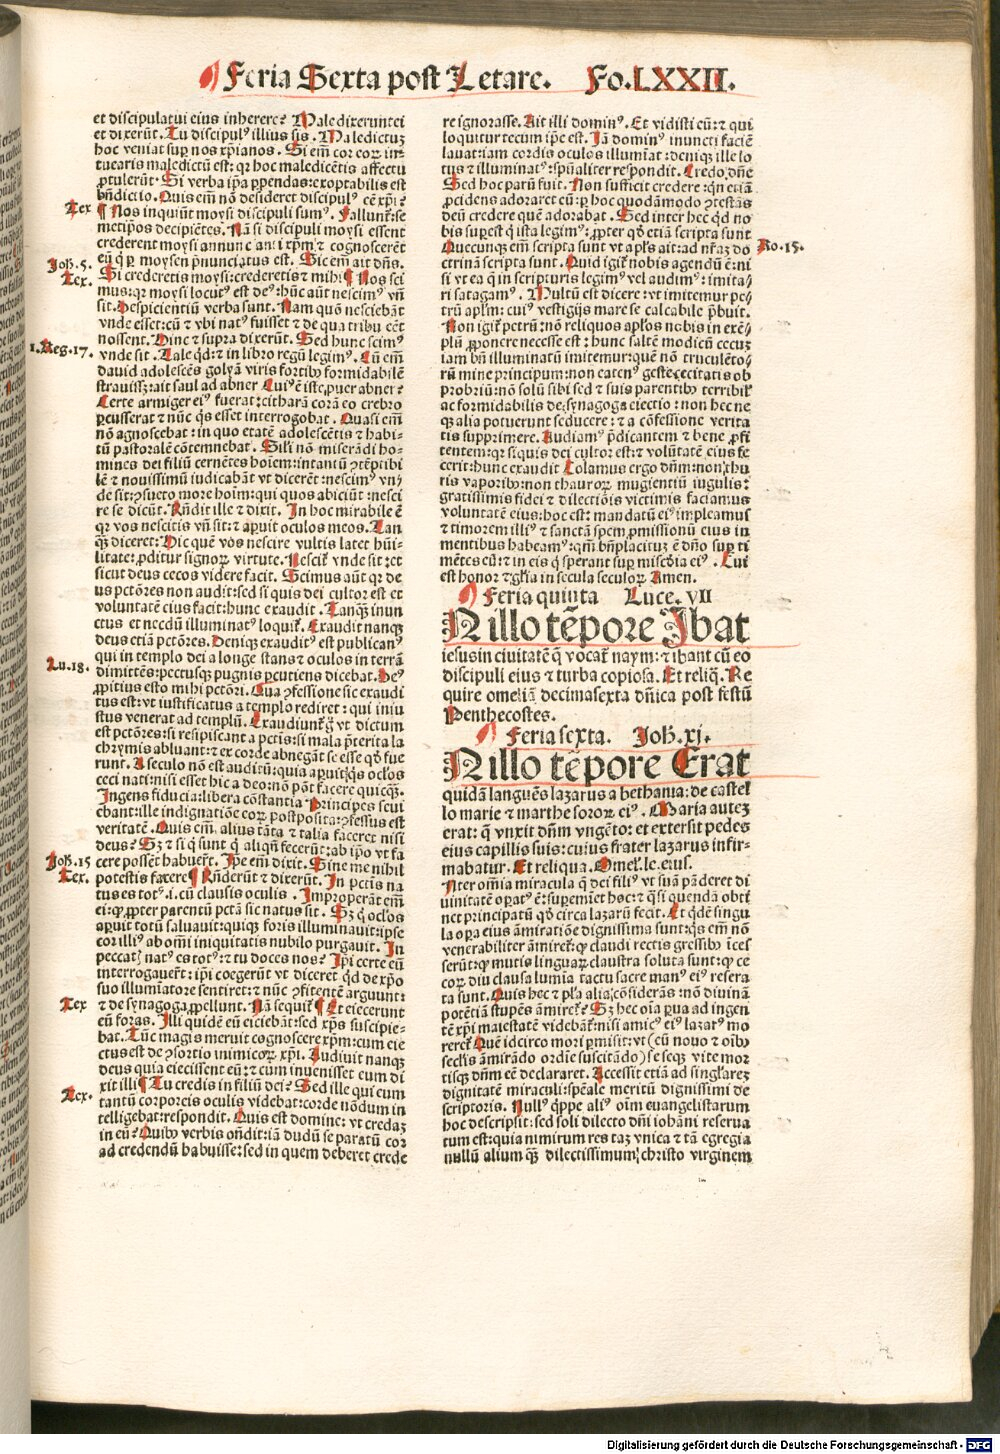 Feria Sexta post Letare. Fo.LXXII.
et discipulatui eius inherere? Maledixerunt ei
et dixerūt. Tu discipulꝰ illius sis. Maledictuz
hoc veniat suꝑ nos xp̄ianos. Si em̄ cor coꝝ in-
tuearis maledictū est: qꝛ hoc maledicētis affectu
ꝓtulerūt. Si verba ip̄a ꝑpendas: exoptabilis est
bn̄dictio. Quis em̄ nō desideret discipulꝰ eē xp̄i?
Tex ¶ Nos inquiūt moysi discipuli sumꝰ. Fallunt se
metip̄os decipiētes. Nā si discipuli moysi essent
crederent moysi annunciāti xp̄m: ⁊ cognoscerēt
eū ꝙ ꝑ moysen p̄nunciatus est. Sic em̄ ait dn̄s.
Joh. 5. Si crederetis moysi: crederetis ⁊ mihi. ¶ Nos sci
Tex. mus: qꝛ moysi locutꝰ est deꝰ: hūc aūt nescimꝰ vn̄
sit. Despicientiū verba sunt. Nam quō nesciebāt
vnde esset: cū ⁊ vbi natꝰ fuisset ⁊ de qua tribu eēt
nossent. Hinc ⁊ supra dixerūt. Sed hunc scimꝰ
1. Reg. 17. vnde sit. Tale qd̄: ⁊ in libro regū legimꝰ. Cū em̄
dauid adolescēs golyā viris fortibꝰ formidabilē
strauissꝫ: ait saul ad abner Cuiꝰ ē iste puer abner?
Certe armiger eiꝰ fuerat: citharā corā eo crebro
ꝑcusserat ⁊ nūc q̄s esset interrogobat. Quasi em̄
nō agnoscebat: in quo etatē adolescētis ⁊ habi-
tū pastoralē cōtemnebat. Sili nō miserādi ho-
mines dei filiū cernētes hoiem: intantū ꝯtēptibi
lē ⁊ nouissimū iudicabāt vt dicerēt: nescimꝰ vn-
de sit: ꝯsueto more hoim: qui quos abiciūt: nesci
re se dicūt. Rn̄dit ille ⁊ dixit. In hoc mirabile ē
qꝛ vos nescitis vn̄ sit: ⁊ aꝑuit oculos meos. Tan
qꝫ diceret: Hic quē vos nescire vultis latet hūi-
litate: ꝓditur signoꝝ virtute. Nescit vnde sit: et
sicut deus cecos videre facit. Scimus aūt qꝛ de
us pctōres non audit: sed si quis dei cultor est et
voluntatē eius facit: hunc exaudit. Tanqꝫ inun
ctus et necdū illuminatꝰ loquit. Exaudit nanqꝫ
deus etiā pctōres. Deniqꝫ exauditꝰ est publicanꝰ
qui in templo dei a longe stans ⁊ oculos in terrā
Lu. 18. dimittēs: pectusqꝫ pugnis ꝑcutiens dicebat. Deꝰ
ꝓpitius esto mihi pctōri. Qua ꝯfessione sic exaudi
tus est: vt iustificatus a templo rediret: qui iniu
stus venerat ad templū. Exaudiunt g̊ vt dictum
est pctōres: si resipiscant a pctīs: si mala p̄terita la
chrymis abluant: ⁊ ex corde abnegāt se esse qd̄ fue
runt. A seculo nō est auditū: quia aꝑuit qs ocl̄os
ceci nati: nisi esset hic a deo: nō pāt facere quicqꝫ.
Ingens fiducia: libera cōstantia Principes seui
ebant: ille indignatiōe eoꝝ postposita: ꝯfessus est
veritatē. Quis em̄ alius tāta ⁊ talia faceret nisi
deus? Sꝫ ⁊ si q̄ sunt q̄ aliqn̄ fecerūt: ab ip̄o vt fa
Joh. 15 cere possēt habuerūt. Ipe em̄ dixit. Sine me nihil
Tex. potestis facere ¶ Rn̄derūt ⁊ dixerūt. In pctīs na
tus es totꝰ. i. cū clausis oculis. Improperāt em̄
ei: ꝙ ꝓpter parentū pctā sic natus sit. Sꝫ q̄ ocl̄os
aꝑuit totū saluauit: quiqꝫ foris illuminauit: ipse
cor illiꝰ ab om̄i iniquitatis nubilo purgauit. In
peccatꝭ natꝰ es totꝰ: ⁊ tu doces nos? Ip̄i certe eū
interrogauerūt: ip̄i coegerūt vt diceret qd̄ de xp̄o
suo illumiātore sentiret: ⁊ nūc ꝯfitentē arguunt:
Tex ⁊ de synagoga ꝓpellunt. Nā sequit ¶ Et eiecerunt
eū foras. Illi quidē eū eiciebāt: sed xp̄s suscipie-
bat. Tūc magis meruit cognoscere xp̄m: cum eie
ctus est de ꝯsortio inimicoꝝ xp̄i. Audiuit nanqꝫ
deus quia eiecissent eū: ⁊ cum inuenisset eum di
Tex. xit illi ¶ Tu credis in filiū dei? Sed ille qui eum
tantū corporeis oculis videbat: corde nōdum in
telligebat: respondit. Quis est domine: vt credaz
in eū? Quibꝰ verbis on̄dit: iā dudū se paratū cor
ad credendū habuisse: sed in quem deberet crede
re ignorasse. Ait illi dominꝰ. Et vidisti eū: ⁊ qui
loquitur tecum ip̄e est. Jā dominꝰ inuncti faciē
lauat: iam cordis oculos illumīat: deniqꝫ ille lo
tus ⁊ illuminatꝰ: sp̄ualiter respondit. Credo dn̄e
Sed hoc parū fuit. Non sufficit credere: qn̄ etiā
ꝓcidens adoraret eū: ꝑ hoc quodāmodo ꝯtestās
deū credere quē adorabat. Sed inter hec qd̄ no
bis suꝑest ꝙ ista legimꝰ: ꝓpter qd̄ etiā scripta sunt
Ro. 15. Quecunqꝫ em̄ scripta sunt vt apl̄s ait: ad nr̄aꝫ do
ctrinā scripta sunt. Quid igit nobis agendū ē: ni
si vt ea q̄ in scripturis legimꝰ vel audimꝰ: imita
ri satagamꝰ. Multū est dicere: vt imitemur pe
trū apl̄m: cuiꝰ vestigijs mare se calcabile p̄buit.
Non igit petrū: nō reliquos apl̄os nobis in exē
plū ꝓponere necesse est: hunc saltē modicū cecuz
iam bn̄ illuminatū imitemur: quē nō truculēto
rū mine principum: non catenꝰ geste cecitatis ob
probriū: nō solū sibi sed ⁊ suis parentibꝰ terribil
ac formidabilis de synagoga eiectio: non hec ne
qꝫ alia potuerunt seducere: ⁊ a cōfessione verita
tis supprimere. Audiamꝰ p̄dicantem ⁊ bene ꝓfi
tentem: qꝛ si quis dei cultor est: ⁊ volūtatē eius fe
cerit: hunc exaudit Colamus ergo dn̄m: non thu
ris vaporibꝰ: non thauroꝝ mugientiū iugulis:
gratissimis fidei ⁊ dilectiōis victimis faciamus
voluntatē eius: hoc est: mandatū eiꝰ impleamus
⁊ timorem illiꝰ ⁊ sanctā spem ꝓmissionū eius in
mentibus habeamꝰ: qm̄ bn̄placituꝫ ē dn̄o suꝑ ti
mētes eū: ⁊ in eis q̄ sperant suꝑ misc̄dia eiꝰ. Cui
est honor ⁊ gl̄ia in secula seculoꝝ Amen.
Feria quinta Luce. VII
IN illo tēpore Ibat
iesus in ciuitatē q̄ vocat naym: ⁊ ibant cū eo
discipuli eius ⁊ turba copiosa. Et reliq̄. Re
quire omeliā decimasexta dn̄ica post festū
Penthecostes.
Feria sexta. Joh. xj.
IN illo tēpore Erat
quidā languēs lazarus a bethania: de castel
lo marie ⁊ marthe sororꝭ eiꝰ. Maria autez
erat: q̄ vnxit dn̄m vngēto: et extersit pedes
eius capillis suis: cuius frater lazarus infir-
mabatur. Et reliqua. Omel. le. eius.
INter om̄ia miracula q̄ dei filiꝰ vt suā pāderet di
uinitatē oꝑatꝰ ē: suꝑemīet hoc: ⁊ q̄si quendā obti
net principatū qd̄ circa lazarū fecit. Et qd̄ē singu
la oꝑa eius āmiratiōe dignissima sunt: qs em̄ nō
venerabiliter āmiret: ꝙ claudi rectis gressibꝰ īces
serūt: ꝙ mutis linguaꝝ claustra soluta sunt: ꝙ ce
coꝝ diu clausa lumīa tactu sacre manꝰ eiꝰ resera
ta sunt. Quis hec ⁊ pl̄a alia cōsiderās: nō diuinā
potētiā stupēs āmiret? Sꝫ hec oīa ꝑua ad ingen
tē xp̄i maiestatē videbāt: nisi amicꝰ eiꝰ lazarꝰ mo
reret Quē idcirco mori ꝑmisit: vt (cū nouo ⁊ oībꝰ
secl̄is āmirādo ordīe suscitādo) se seqꝫ vite mor
tisqꝫ dn̄m eē declararet. Accessit etiā ad singl̄areꝫ
dignitatē miraculi: sp̄eale meritū dignissimi de
scriptoris. Nullꝰ q̄ppe aliꝰ oīm euangelistarum
hoc descripsit: sed soli dilecto dn̄i iohāni reserua
tum est: quia nimirum res taꝫ vnica ⁊ tā egregia
nullū alium qꝫ dilectissimum christo virginem
Digitalisierung gefördert durch die Deutsche Forschungsgemeinschaft - DFG